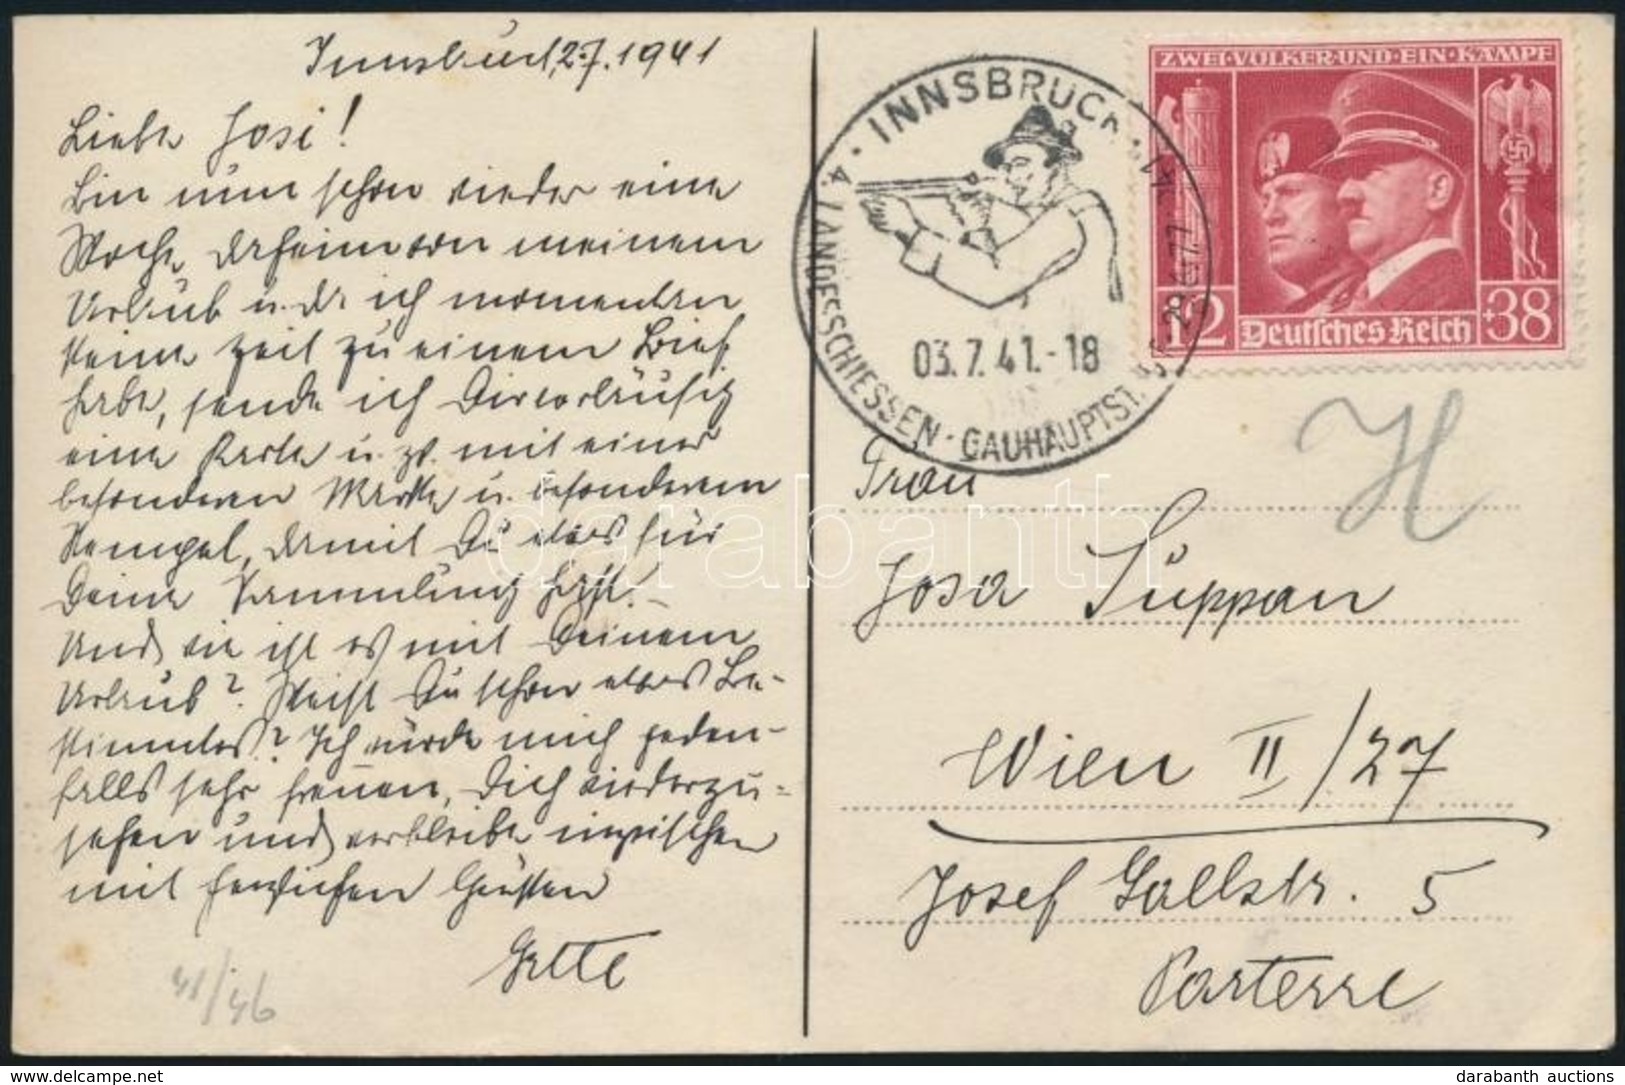 Innsbruck, 2.7.1941
Liebe Josi!
Bin nun schon wieder eine
Woche daheim von meinem
Urlaub u. da ich momentan
keine Zeit zu einem Brief
habe, sende ich Dir vorläufig
eine Karte u. zw. mit einer
besonderen Marke u. besonderem
Stempel, damit Du etwas für
Deine Sammlung hast! –
Und wie ist es mit Deinem
Urlaub? Weißt Du schon etwas Be-
stimmtes? Ich würde mich jeden-
falls sehr freuen, Dich wiederzu-
sehen und verbleibe inzwischen
mit herzlichen Grüssen
Grete
41/46
INNSBRUCK
4. LANDESSCHIESSEN · GAUHAUPTST.
03.7.41.-18
ZWEI·VÖLKER·UND·EIN·KAMPF
12 Deutsches Reich +38
H
Frau
Josa Suppan
Wien II/27
Josef Gallstr. 5
Parterre
darabanth
darabanth auctions
www.delcampe.net